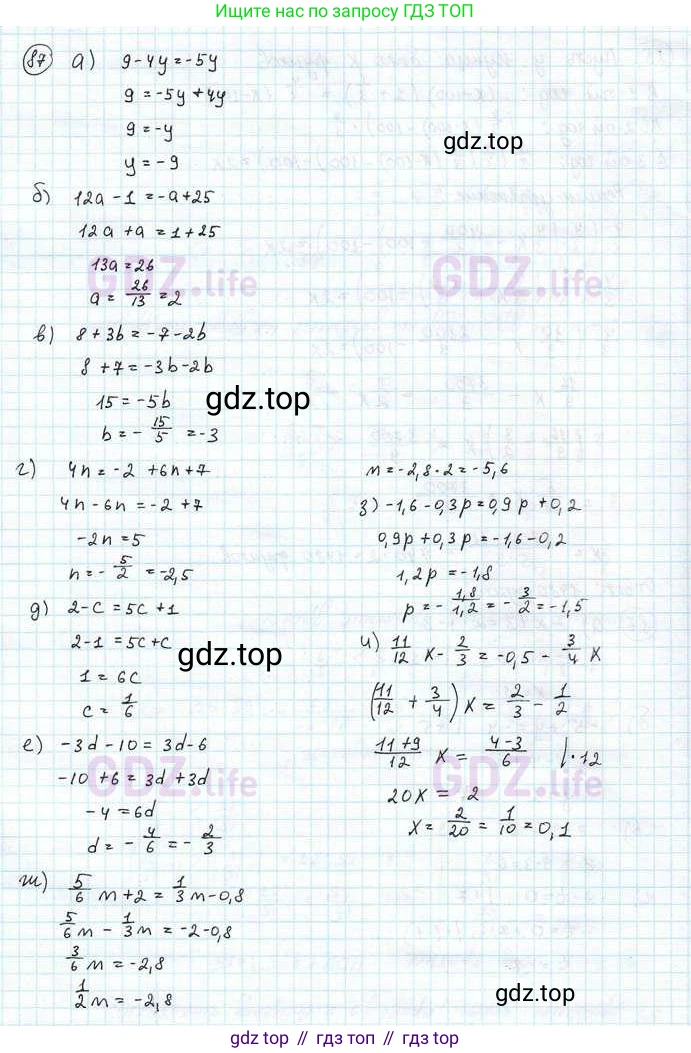 Ищите нас по запросу ГДЗ ТОП
87 а) 9 - 4y = -5y
9 = -5y + 4y
9 = -y
y = -9
gdz.top
б) 12a - 1 = -a + 25
12a + a = 1 + 25
13a = 26
a = 26/13 = 2
GDZ.life
GDZ.life
в) 8 + 3b = -7 - 2b
8 + 7 = -3b - 2b
15 = -5b
b = - 15/5 = -3
gdz.top
г) 4n = -2 + 6n + 7
4n - 6n = -2 + 7
-2n = 5
n = - 5/2 = -2,5
д) 2 - c = 5c + 1
2 - 1 = 5c + c
1 = 6c
c = 1/6
gdz.top
е) -3d - 10 = 3d - 6
-10 + 6 = 3d + 3d
-4 = 6d
d = - 4/6 = - 2/3
GDZ.life
GDZ.life
ж) 5/6 m + 2 = 1/3 m - 0,8
5/6 m - 1/3 m = -2 - 0,8
3/6 m = -2,8
1/2 m = -2,8
m = -2,8 · 2 = -5,6
з) -1,6 - 0,3p = 0,9p + 0,2
0,9p + 0,3p = -1,6 - 0,2
1,2p = -1,8
p = - 1,8/1,2 = - 3/2 = -1,5
и) 11/12 x - 2/3 = -0,5 - 3/4 x
(11/12 + 3/4) x = 2/3 - 1/2
11+9/12 x = 4-3/6 | · 12
20x = 2
x = 2/20 = 1/10 = 0,1
gdz.top
gdz.top // гдз топ // gdz.top